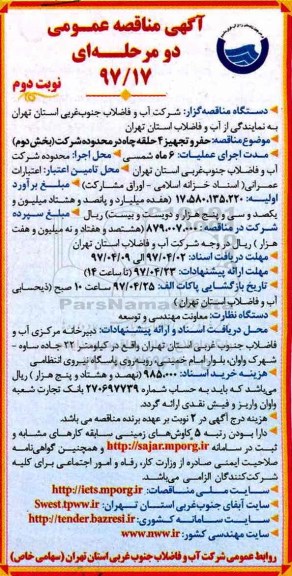 آگهی مناقصه عمومی
دو مرحله‌ای
۹۷/۱۷
نوبت دوم
دستگاه مناقصه‌گزار: شرکت آب و فاضلاب جنوب‌غربی استان تهران
به نمایندگی از آب و فاضلاب استان تهران
موضوع‌مناقصه: حفر و تجهیز ۴ حلقه چاه در محدوده شرکت (بخش دوم)
مدت اجرای عملیات: ۶ ماه شمسی محل اجرا: محدوده شرکت
آب و فاضلاب جنوب‌غربی استان تهران محل تامین اعتبار: اعتبارات
عمرانی (اسناد خزانه اسلامی - اوراق مشارکت) مبلغ برآورد
اولیه: ۱۷،۵۸۰،۱۳۵،۲۲۰ (هفده میلیارد و پانصد و هشتاد میلیون و
یکصد و سی و پنج هزار و دویست و بیست) ریال مبلغ سپرده
شرکت در مناقصه: ۸۷۹،۰۰۷،۰۰۰ (هشتصد و هفتاد و نه میلیون و هفت
هزار) ریال در وجه شرکت آب و فاضلاب استان تهران
مهلت دریافت اسناد: ۹۷/۰۴/۰۲ الی ۹۷/۰۴/۰۹
مهلت ارائه پیشنهادات: ۹۷/۰۴/۲۳ (تا ساعت ۱۴)
تاریخ بازگشایی پاکات الف: ۹۷/۰۴/۲۵ ساعت ۱۰ صبح (ذیحسابی
آب و فاضلاب استان تهران)
دستگاه نظارت: معاونت مهندسی و توسعه
محل دریافت اسناد و ارائه پیشنهادات: دبیرخانه مرکزی آب و
فاضلاب جنوب غربی استان تهران واقع در کیلومتر ۲۲ جاده ساوه -
شهرک واوان، بلوار امام خمینی، روبه‌روی پاسگاه نیروی انتظامی
هزینه خرید اسناد: ۹۸۵،۰۰۰ (نهصد و هشتاد و پنج هزار) ریال
می‌باشد که باید به حساب شماره ۲۷۰۶۹۷۷۳۹ بانک تجارت شعبه
واوان واریز و فیش نقدی ارائه گردد.
هزینه درج آگهی در ۲ نوبت بر عهده برنده مناقصه می باشد.
دارا بودن رتبه ۵ کاوش‌های زمینی سابقه کارهای مشابه و
ثبت در سامانه http://sajar.mporg.ir و همچنین گواهی‌نامه
صلاحیت ایمنی صادره از وزارت کار، رفاه و امور اجتماعی برای کلیه
شرکت‌کنندگان الزامی می‌باشد.
سایت ملی مناقصات: http://iets.mporg.ir
سایت آبفای جنوب‌غربی استان تهران: Swest.tpww.ir
سایت سامانه کشوری: http://tender.bazresi.ir
سایت مهندسی کشور: www.nww.ir
روابط عمومی شرکت آب و فاضلاب جنوب غربی استان تهران (سهامی خاص)